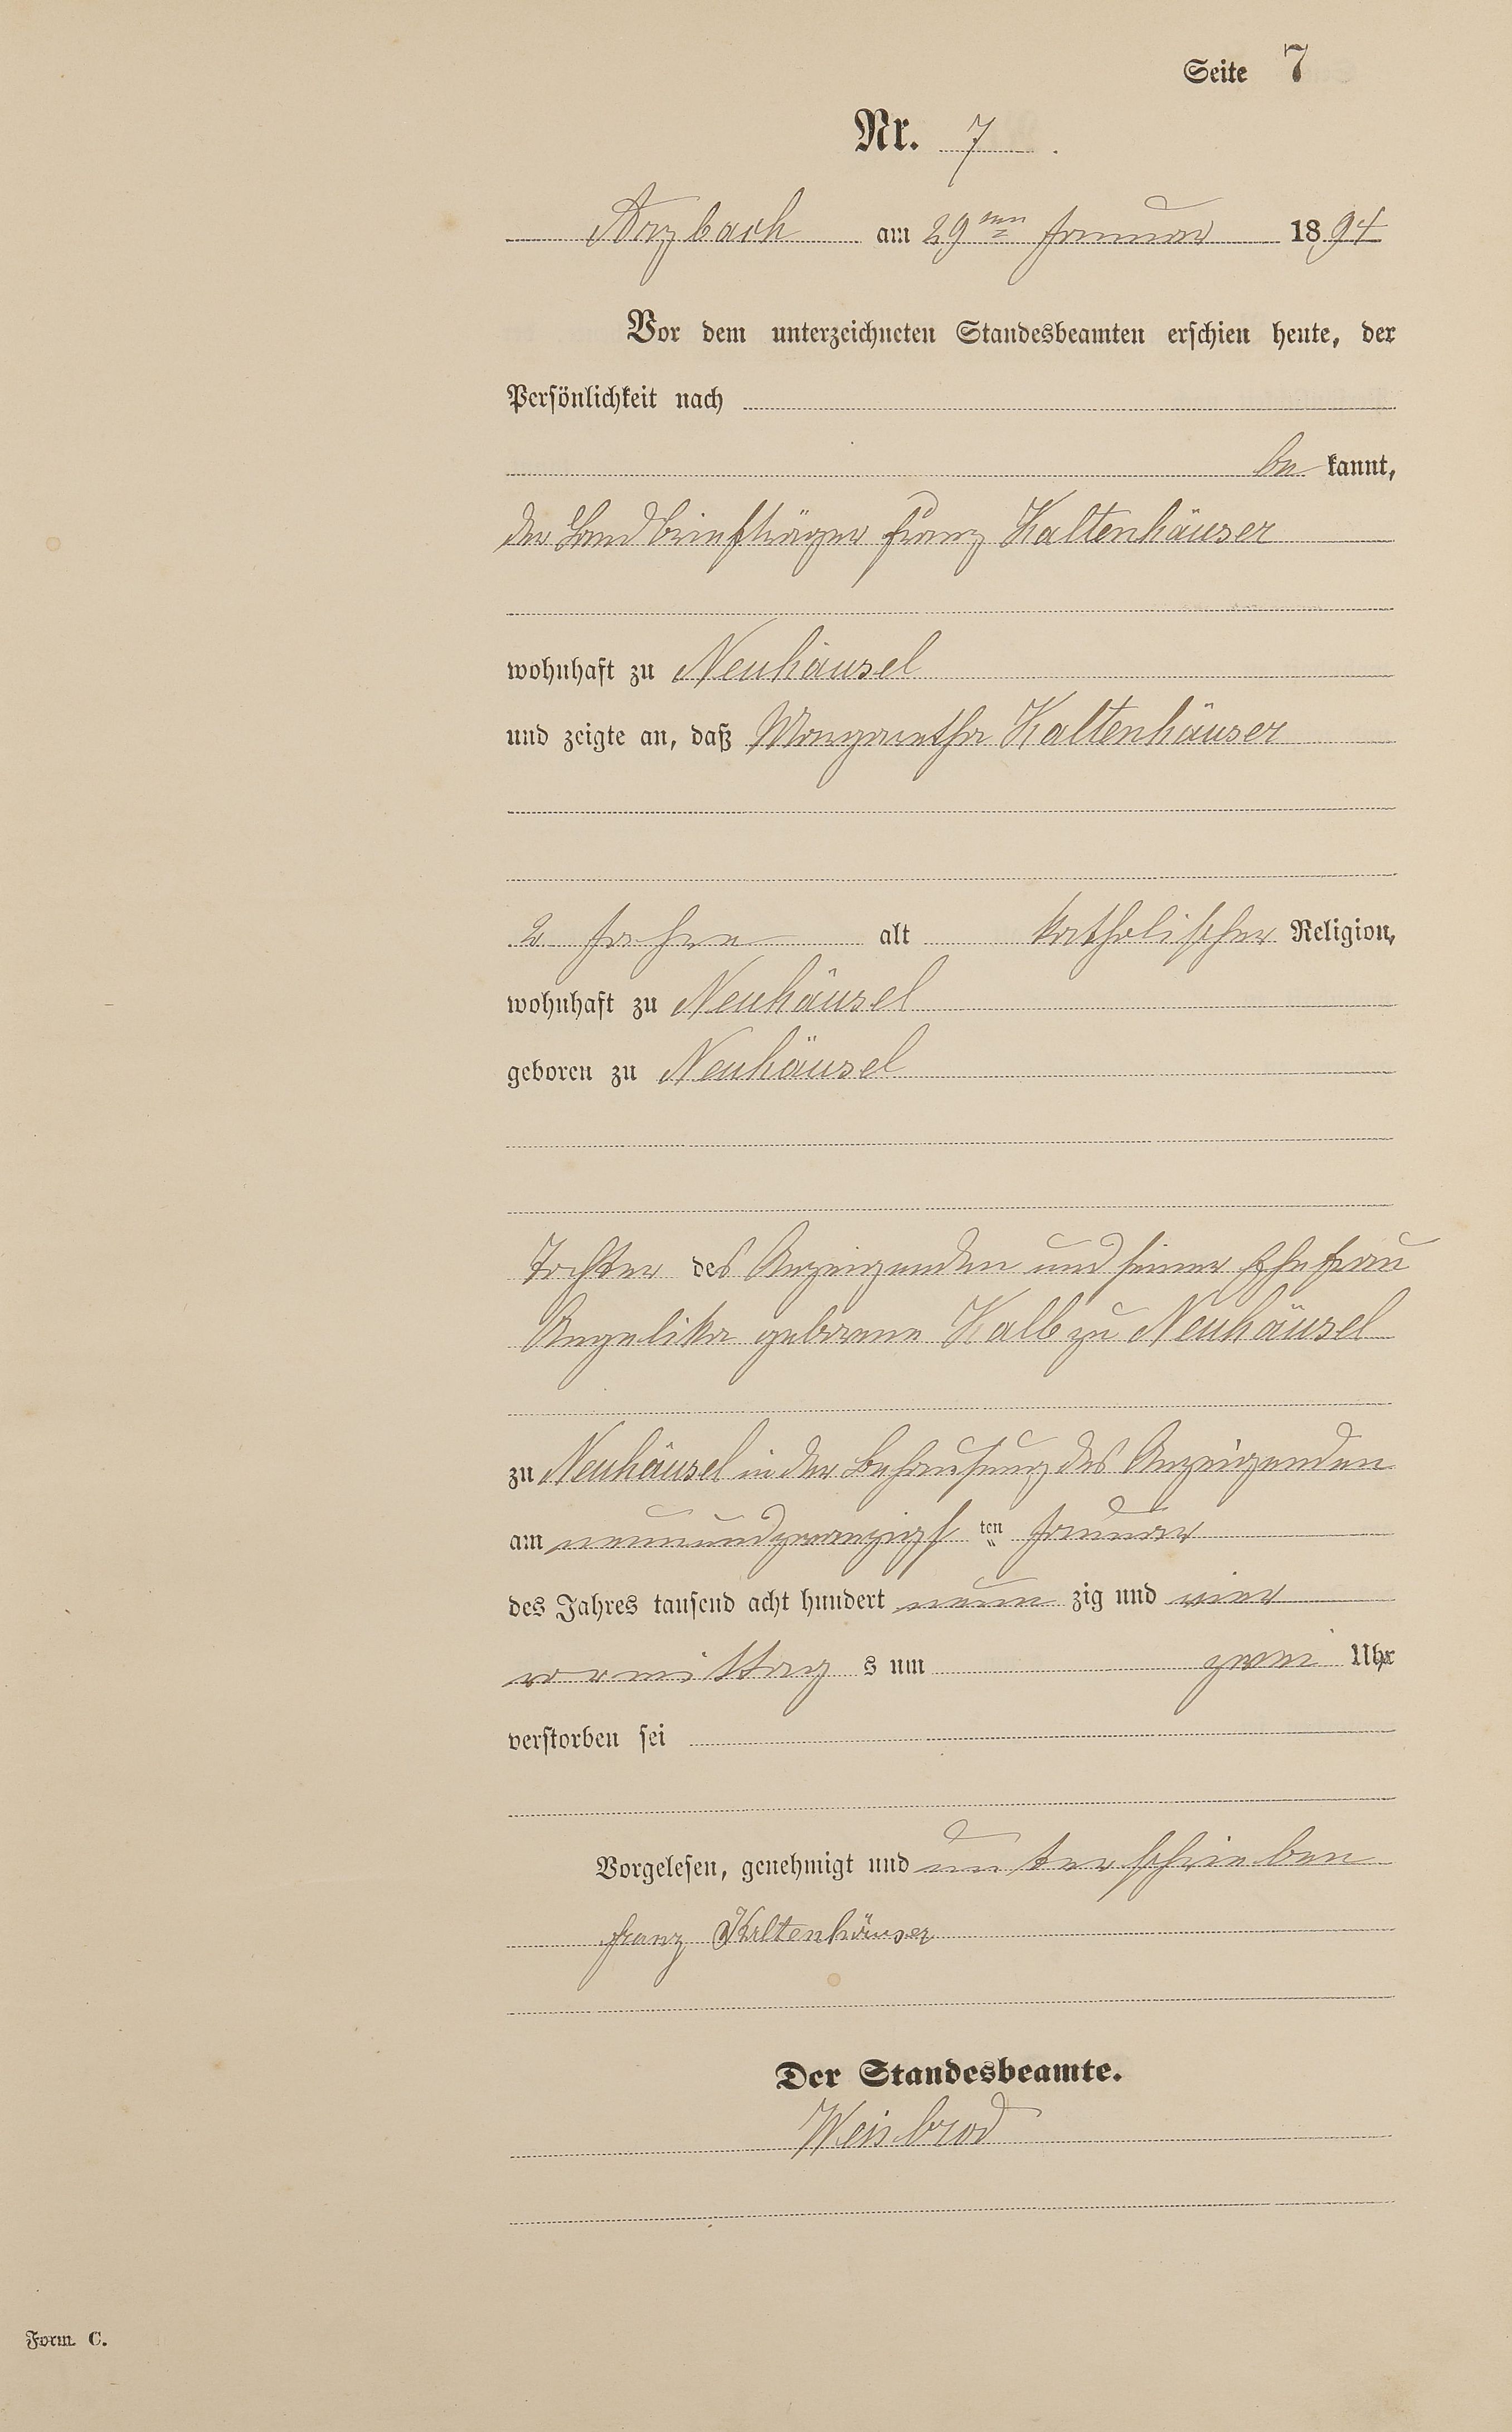 Seite 7
Nr. 7.
Arzbach am 29ten Januar 1894
Vor dem unterzeichneten Standesbeamten erschien heute, der
Persönlichkeit nach
be kannt,
der Landbriefträger Franz Kaltenhäuser
wohnhaft zu Neuhäusel
und zeigte an, daß Margaretha Kaltenhäuser
2 Jahre alt katholischer Religion,
wohnhaft zu Neuhäusel
geboren zu Neuhäusel
Tochter des Anzeigenden und seiner Ehefrau
Angelika geborene Kalb zu Neuhäusel
zu Neuhäusel in der Behausung des Anzeigenden
am neunundzwanzigsten Januar
des Jahres tausend acht hundert neun zig und vier
vormittags um zwei Uhr
verstorben sei
Vorgelesen, genehmigt und unterschrieben
Franz Kaltenhäuser
Der Standesbeamte.
Weisbrod
Form. C.